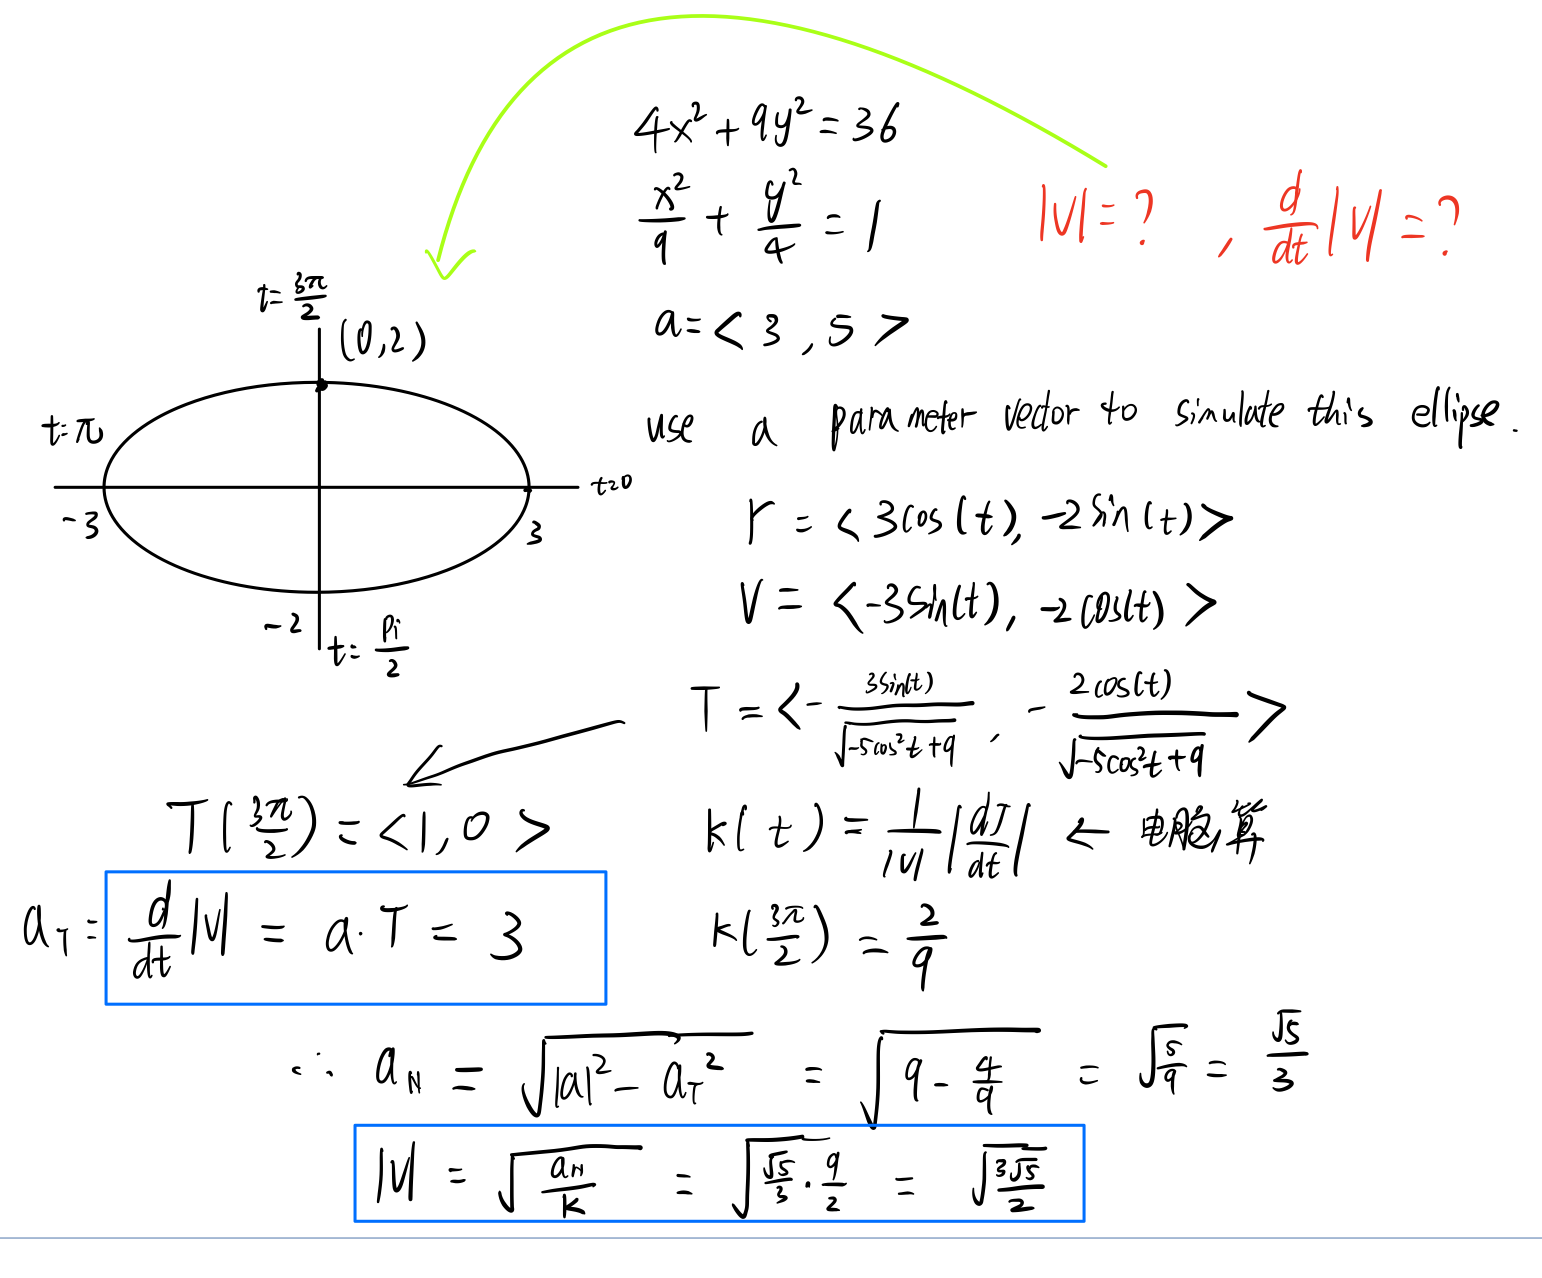 4x² + 9y² = 36
x²/9 + y²/4 = 1
|V| = ? , d/dt |V| = ?
a = < 3 , 5 >
t = 3π/2
(0,2)
t = π
t=0
-3
3
-2
t = Pi/2
use a parameter vector to simulate this ellipse.
r = < 3cos(t), -2sin(t) >
V = < -3sin(t), -2cos(t) >
T = < - 3sin(t)/√(-5cos²t+9) , - 2cos(t)/√(-5cos²t+9) >
T(3π/2) = < 1, 0 >
k(t) = 1/|V| |dT/dt| ← 电脑算
a_T = d/dt |V| = a · T = 3
k(3π/2) = 2/9
∴ a_N = √(|a|² - a_T²) = √(9 - 4/9) = √(5/9) = √5/3
|V| = √(a_N/k) = √(√5/3 · 9/2) = √(3√5/2)